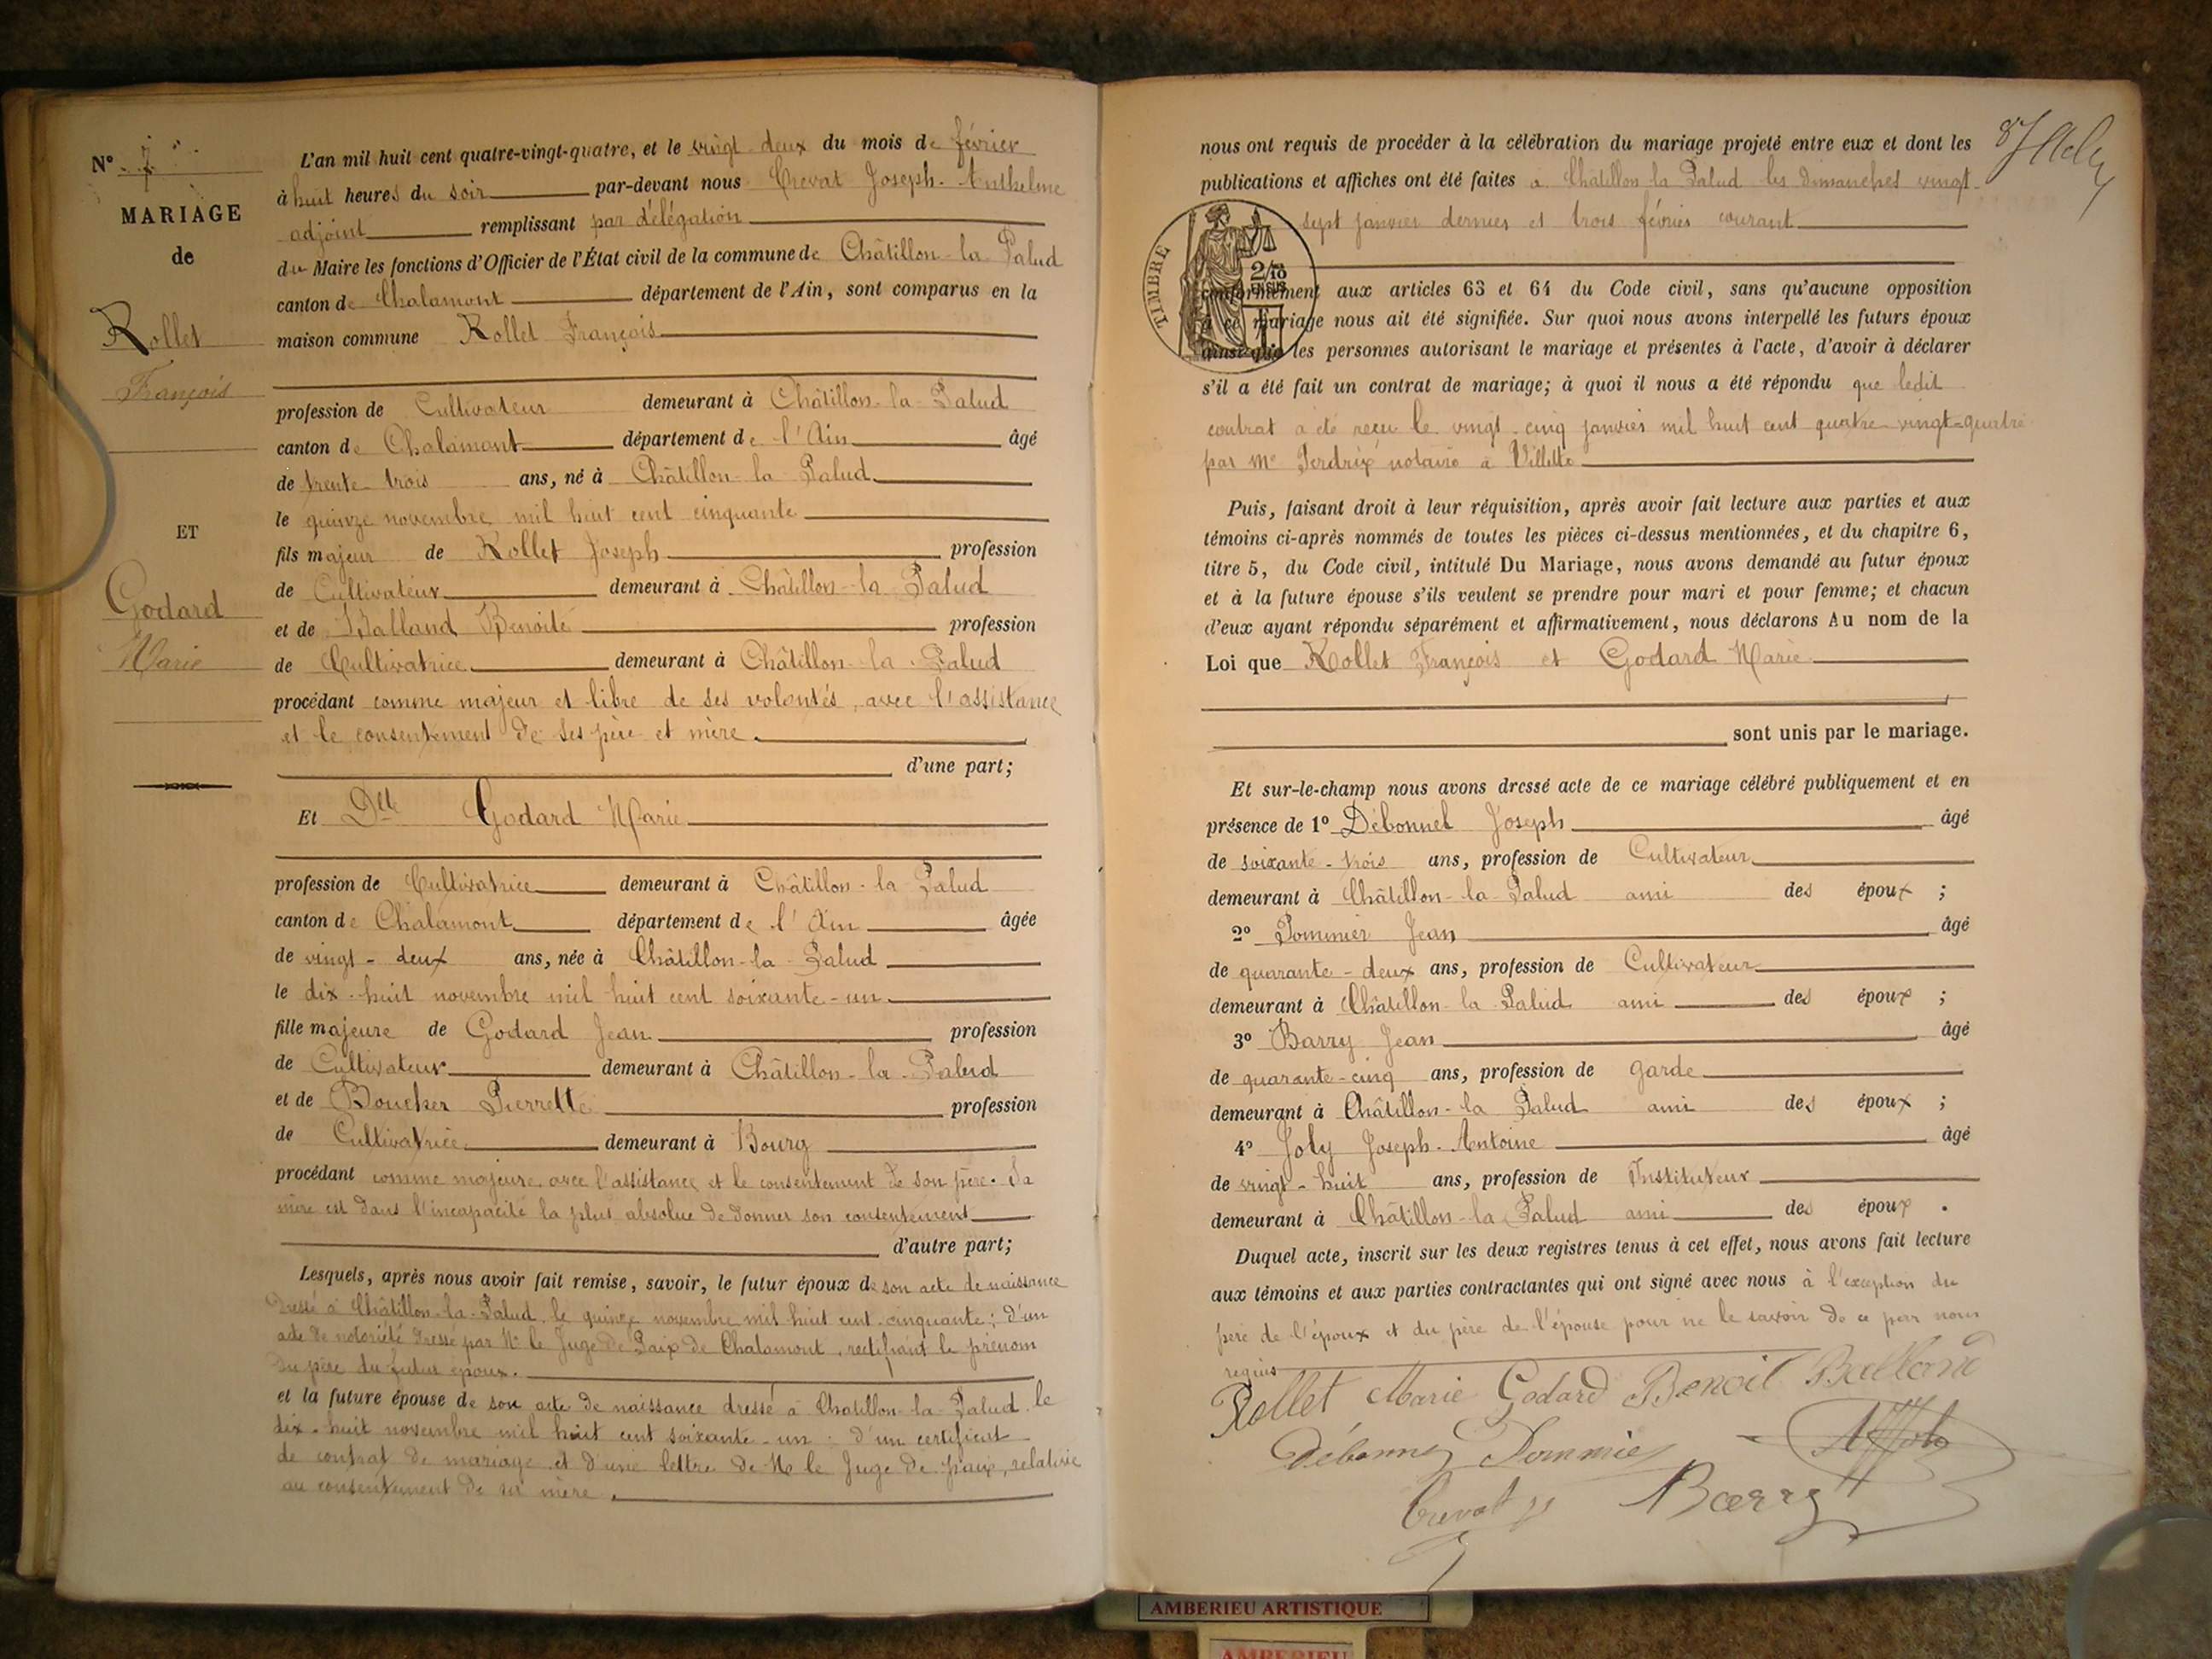 N° 7
MARIAGE
de
Rollet
François
ET
Godard
Marie
L'an mil huit cent quatre-vingt-quatre, et le vingt-deux du mois de février
à huit heures du soir par-devant nous Crevat Joseph-Anthelme
adjoint remplissant par délégation
du Maire les fonctions d'Officier de l'État civil de la commune de Châtillon-la-Palud
canton de Chalamont département de l'Ain, sont comparus en la
maison commune Rollet François
profession de Cultivateur demeurant à Châtillon-la-Palud
canton de Chalamont département de l'Ain âgé
de trente-trois ans, né à Châtillon-la-Palud
le quinze novembre mil huit cent cinquante
fils majeur de Rollet Joseph profession
de Cultivateur demeurant à Châtillon-la-Palud
et de Balland Benoite profession
de Cultivatrice demeurant à Châtillon-la-Palud
procédant comme majeur et libre de ses volontés, avec l'assistance
et le consentement de ses père et mère.
d'une part;
Et Dlle Godard Marie
profession de Cultivatrice demeurant à Châtillon-la-Palud
canton de Chalamont département de l'Ain âgée
de vingt-deux ans, née à Châtillon-la-Palud
le dix-huit novembre mil huit cent soixante-un
fille majeure de Godard Jean profession
de Cultivateur demeurant à Châtillon-la-Palud
et de Boucher Pierrette profession
de Cultivatrice demeurant à Bourg
procédant comme majeure avec l'assistance et le consentement de son père. Sa
mère est dans l'incapacité la plus absolue de donner son consentement
d'autre part;
Lesquels, après nous avoir fait remise, savoir, le futur époux de son acte de naissance
dressé à Châtillon-la-Palud le quinze novembre mil huit cent cinquante; d'un
acte de notoriété dressé par Mr le Juge de Paix de Chalamont, rectifiant le prénom
du père du futur époux.
et la future épouse de son acte de naissance dressé à Chatillon-la-Palud le
dix-huit novembre mil huit cent soixante-un; d'un certificat
de contrat de mariage et d'une lettre de Mr le Juge de paix, relative
au consentement de sa mère.
87
nous ont requis de procéder à la célébration du mariage projeté entre eux et dont les
publications et affiches ont été faites à Châtillon-la-Palud les dimanches vingt-
sept janvier dernier et trois février courant
TIMBRE
2/10
EN SUS
conformément aux articles 63 et 64 du Code civil, sans qu'aucune opposition
à ce mariage nous ait été signifiée. Sur quoi nous avons interpellé les futurs époux
ainsi que les personnes autorisant le mariage et présentes à l'acte, d'avoir à déclarer
s'il a été fait un contrat de mariage; à quoi il nous a été répondu que ledit
contrat a été reçu le vingt-cinq janvier mil huit cent quatre-vingt-quatre
par Me Perdrix notaire à Villette
Puis, faisant droit à leur réquisition, après avoir fait lecture aux parties et aux
témoins ci-après nommés de toutes les pièces ci-dessus mentionnées, et du chapitre 6,
titre 5, du Code civil, intitulé Du Mariage, nous avons demandé au futur époux
et à la future épouse s'ils veulent se prendre pour mari et pour femme; et chacun
d'eux ayant répondu séparément et affirmativement, nous déclarons Au nom de la
Loi que Rollet François et Godard Marie
sont unis par le mariage.
Et sur-le-champ nous avons dressé acte de ce mariage célébré publiquement et en
présence de 1° Débonnel Joseph âgé
de soixante-trois ans, profession de Cultivateur
demeurant à Châtillon-la-Palud ami des époux ;
2° Pommier Jean âgé
de quarante-deux ans, profession de Cultivateur
demeurant à Châtillon-la-Palud ami des époux ;
3° Barry Jean âgé
de quarante-cinq ans, profession de garde
demeurant à Châtillon-la-Palud ami des époux ;
4° Joly Joseph-Antoine âgé
de vingt-huit ans, profession de Instituteur
demeurant à Châtillon-la-Palud ami des époux .
Duquel acte, inscrit sur les deux registres tenus à cet effet, nous avons fait lecture
aux témoins et aux parties contractantes qui ont signé avec nous à l'exception du
père de l'époux et du père de l'épouse pour ne le savoir de ce par nous
requis
Rollet Marie Godard Benoit Balland
Débonnel Pommier
Crevat Barry
AMBERIEU ARTISTIQUE
AMBERIEU